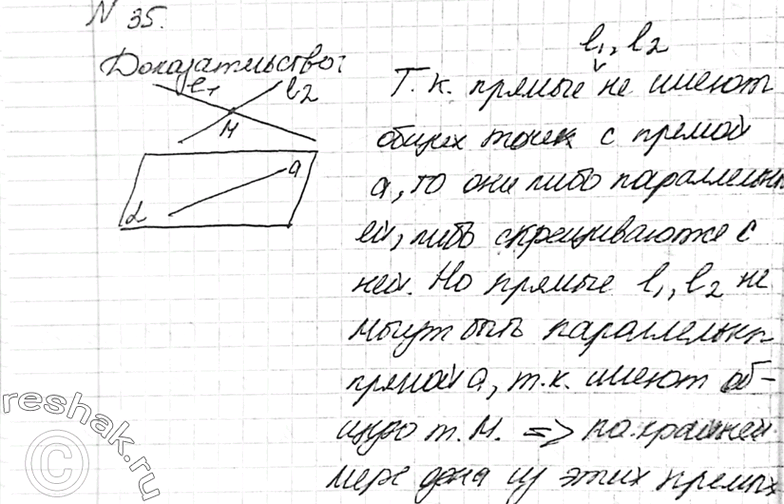 N 35.
Доказательство:
в₁ в₂
М
a
α
в₁, в₂
Т.к. прямые не имеют
общих точек с прямой
а, то они либо параллельны
ей, либо скрещиваются с
ней. Но прямые в₁, в₂ не
могут быть параллельны
прямой а, т.к. имеют об-
щую т. М. => по крайней
мере одна из этих прямых
reshak.ru
©